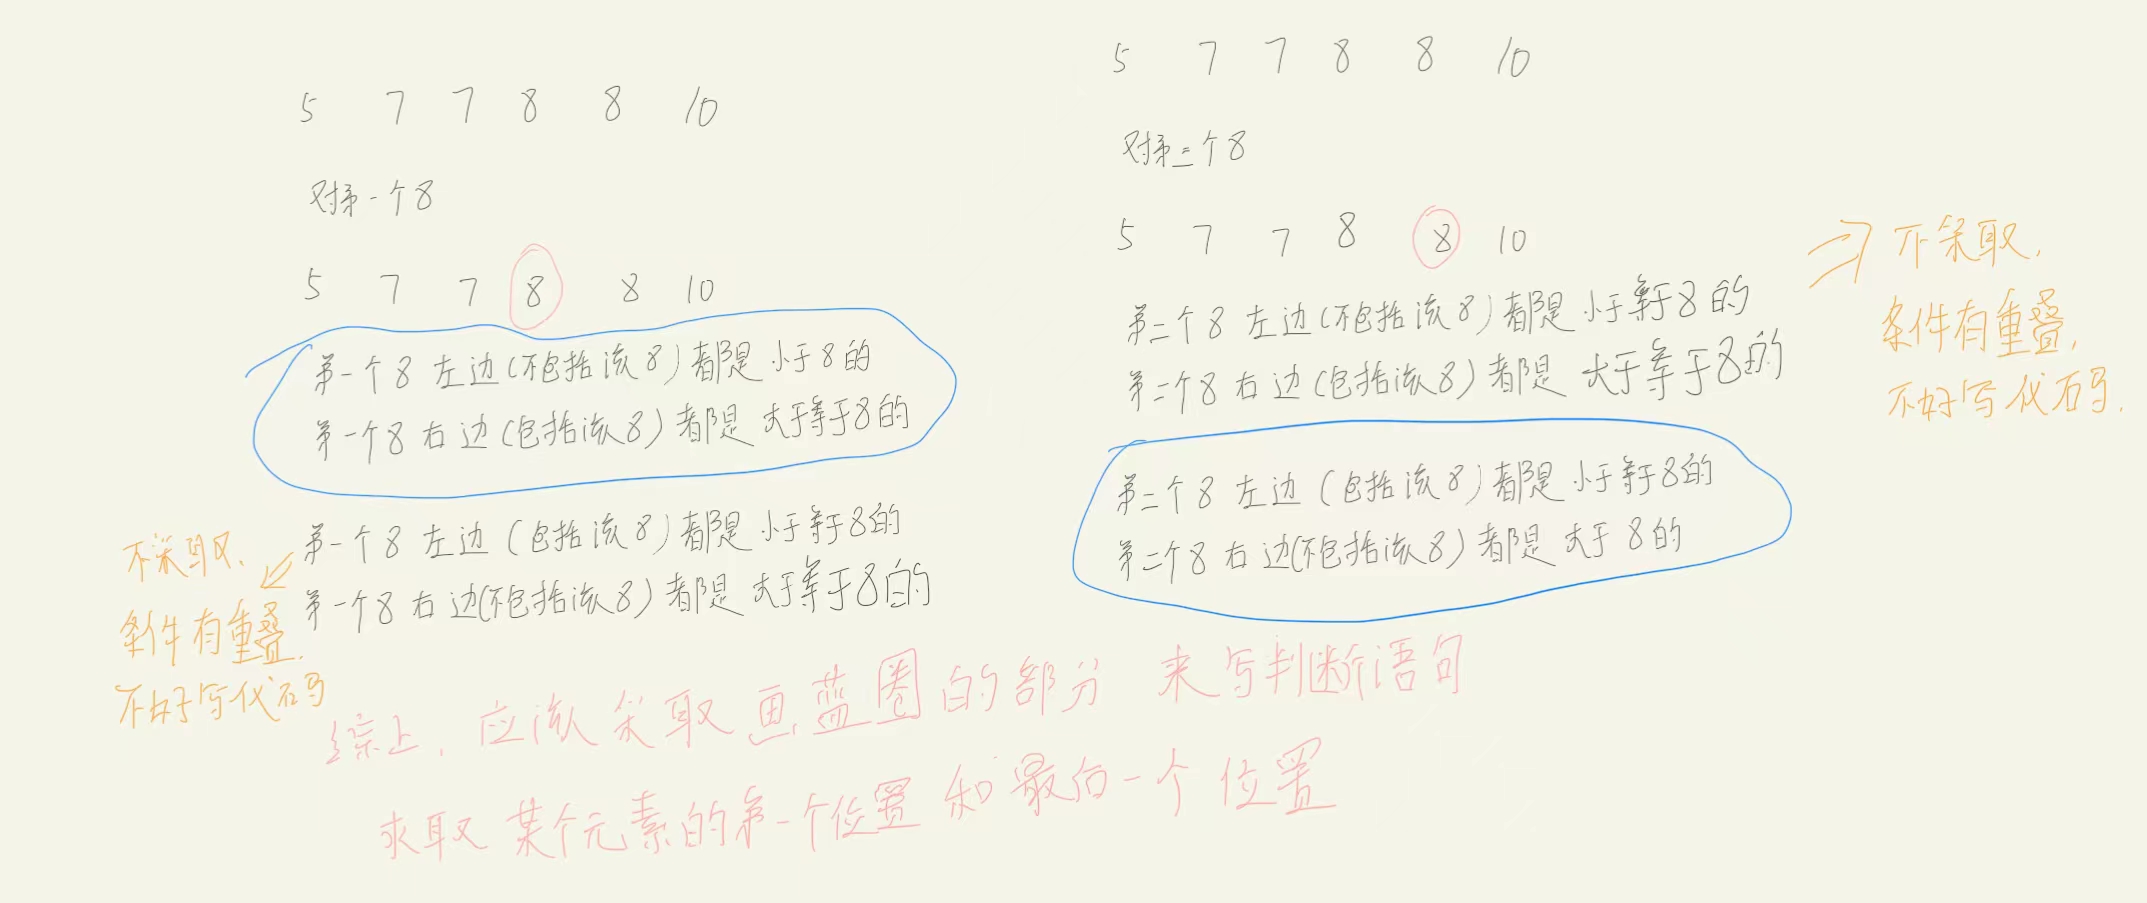 5 7 7 8 8 10
对第一个8
5 7 7 8 8 10
第一个8左边(不包括该8)都是小于8的
第一个8右边(包括该8)都是大于等于8的
第一个8左边(包括该8)都是小于等于8的
第一个8右边(不包括该8)都是大于等于8的
不采取、
条件有重叠.
不好写代码
5 7 7 8 8 10
对第二个8
5 7 7 8 8 10
第二个8左边(不包括该8)都是小于等于8的
第二个8右边(包括该8)都是大于等于8的
第二个8左边(包括该8)都是小于等于8的
第二个8右边(不包括该8)都是大于8的
不采取.
条件有重叠,
不好写代码.
综上,应该采取画蓝圈的部分来写判断语句
求取某个元素的第一个位置和最后一个位置